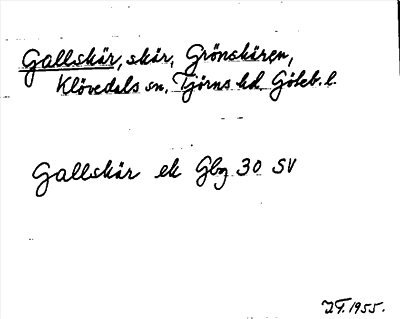 Gallskär, skär, Grönskären,
Klövedals sn. Tjörns hd. Göteb. l.
Gallskär ek Gbg 30 SV
1955.